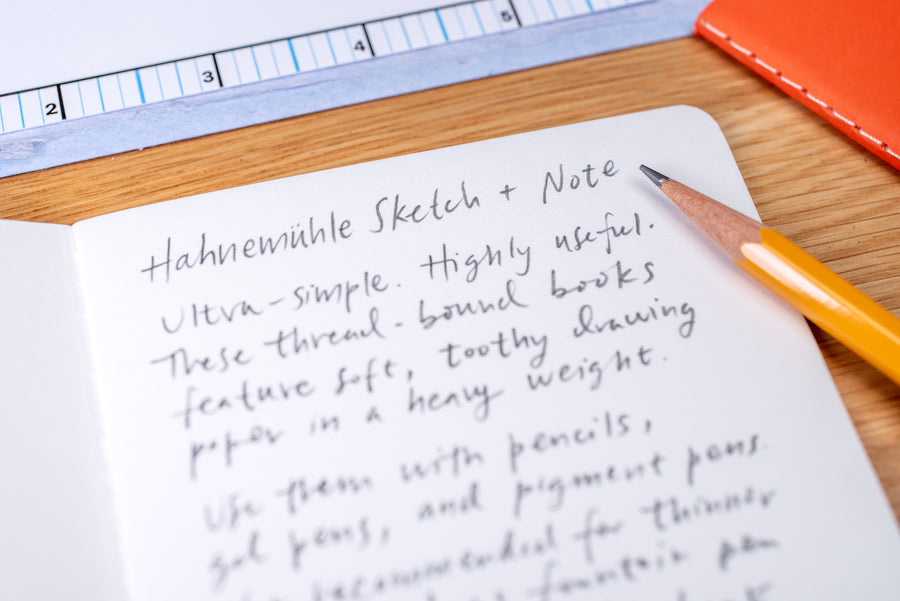 2 3 4 5
Hahnemühle Sketch + Note
Ultra-simple. Highly useful.
These thread-bound books
feature soft, toothy drawing
paper in a heavy weight.
Use them with pencils,
gel pens, and pigment pens.
recommended for thinner
fountain pen